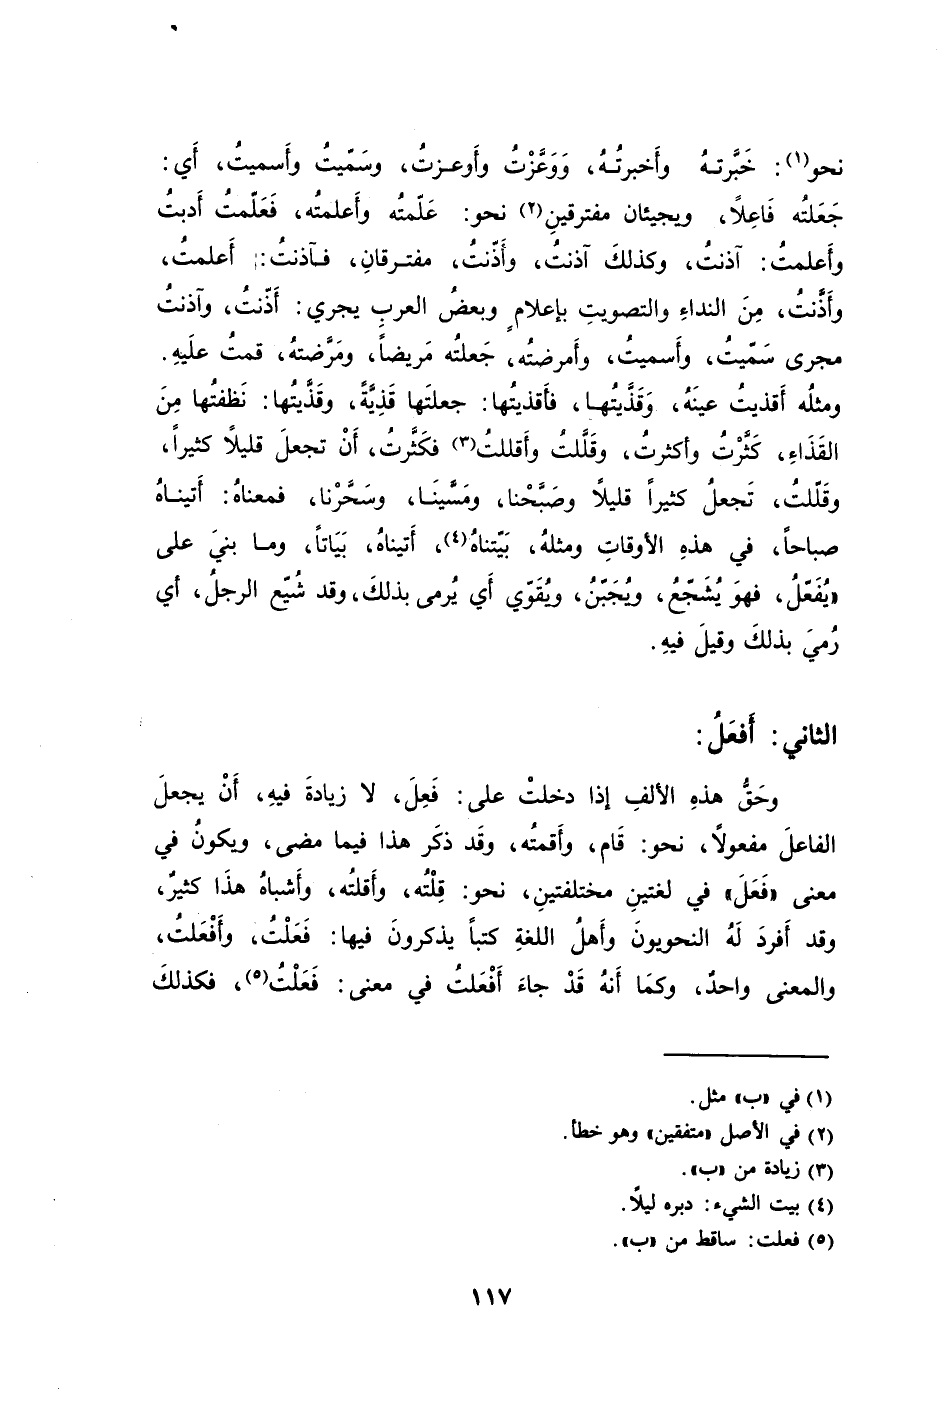 نحو(١): خَبَّرتهُ وأخبرتُهُ، وَوَعَّزْتُ وأوعزتُ، وسَمّيتُ وأسميتُ، أَي:
جَعَلتُه فَاعِلًا، ويجيئان مفترقينِ(٢) نحو: عَلّمتُه وأعلمتُه، فَعَلّمتُ أدبتُ
وأعلمتُ: آذنتُ، وكذلكَ آذنتُ، وأَذّنتُ، مفترقانِ، فآذنتُ: أَعلمتُ،
وأَذَّنتُ، مِنَ النداءِ والتصويتِ بإعلامٍ وبعضُ العربِ يجري: أَذّنتُ، وآذنتُ
مجرى سَمّيتُ، وأَسميتُ، وأَمرضتُه، جَعلتُه مَريضاً، ومَرَّضتهُ، قمتُ علَيهِ.
ومثلُه أقذيتُ عينَهُ، وَقَذَّيتُها، فأقذيتُها: جعلتَها قَذِيَّةً، وقَذَّيتُها: نَظفتُها مِنَ
القَذَاءِ، كَثَّرْتُ وأكثرتُ، وقلَّلتُ وأقللتُ(٣) فكَثَّرتُ، أَنْ تجعلَ قليلًا كثيراً،
وقَلّلتُ، تَجعلُ كثيراً قليلًا وصَبَّحْنا، ومَسَّينَا، وسَحَّرْنا، فمعناهُ: أَتيناهُ
صباحاً، في هذهِ الأوقاتِ ومثلهُ، بَيّتناهُ(٤)، أَتيناهُ، بَيَاتاً، وما بنيَ على
«يُفَعّلُ، فهوَ يُشَجّعُ، ويُجَبّنُ، ويُقَوّي أي يُرمى بذلكَ، وقد شُيّع الرجلُ، أي
رُميَ بذلكَ وقيلَ فيهِ.
الثاني: أَفعَلُ:
وحَقُّ هذهِ الألفِ إذا دخلتْ على: فَعِلَ، لا زيادةَ فيهِ، أَنْ يجعلَ
الفاعلَ مفعولًا، نحو: قَام، وأَقمتُه، وقَد ذكَر هذا فيما مضى، ويكونُ في
معنى «فَعَلَ» في لغتينِ مختلفتينِ، نحو: قِلْتُه، وأَقلتُه، وأَشباهُ هذَا كثيرٌ،
وقد أَفردَ لَهُ النحويونَ وأَهلُ اللغةِ كتباً يذكرونَ فيها: فَعَلْتُ، وأَفْعَلتُ،
والمعنى واحدٌ، وكمَا أَنهُ قَدْ جاءَ أَفْعَلتُ في معنى: فَعَلْتُ(٥)، فكذلكَ
(١) في «ب» مثل.
(٢) في الأصل «متفقين» وهو خطأ.
(٣) زيادة من «ب».
(٤) بيت الشيء: دبره ليلًا.
(٥) فعلت: ساقط من «ب».
١١٧